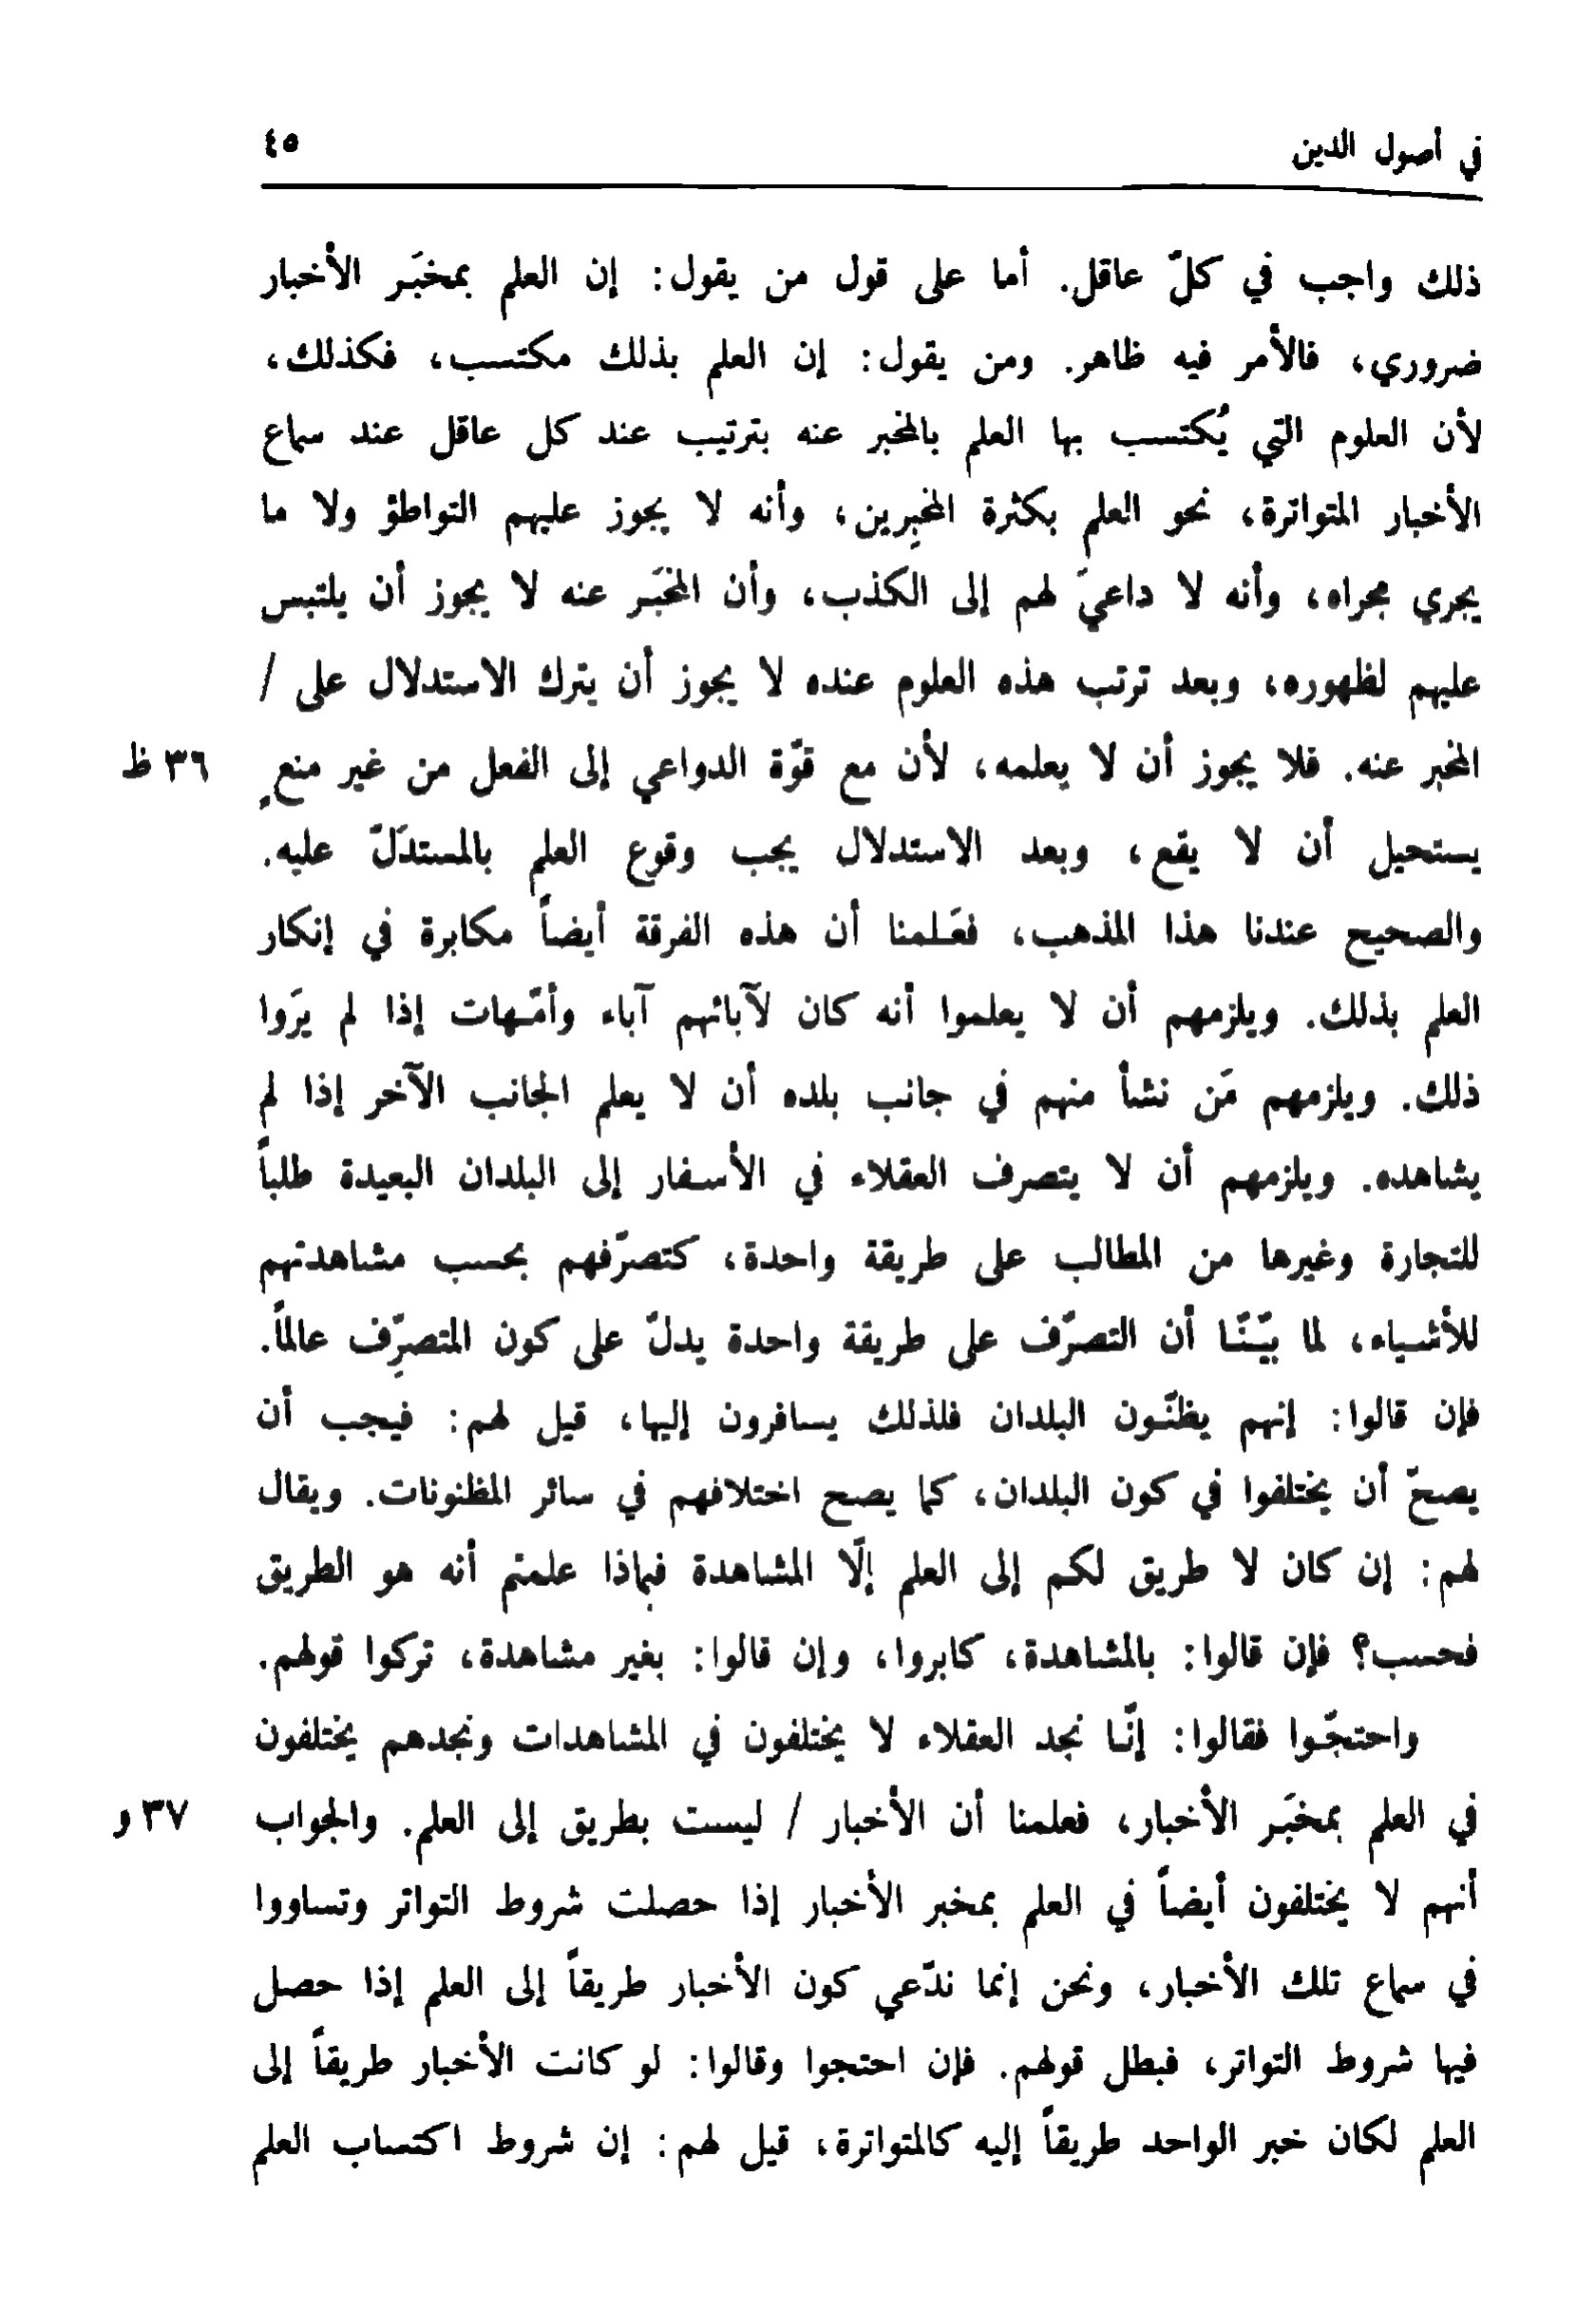 في أصول الدين ٤٥
ذلك واجب في كلّ عاقل. أما على قول من يقول: إن العلم بمخبَر الأخبار
ضروري، فالأمر فيه ظاهر. ومن يقول: إن العلم بذلك مكتسب، فكذلك،
لأن العلوم التي يُكتسب بها العلم بالمخبر عنه بترتيب عند كل عاقل عند سماع
الأخبار المتواترة، نحو العلم بكثرة المخبِرين، وأنه لا يجوز عليهم التواطؤ ولا ما
يجري مجراه، وأنه لا داعيَ لهم إلى الكذب، وأن المخبَر عنه لا يجوز أن يلتبس
عليهم لظهوره، وبعد ترتب هذه العلوم عنده لا يجوز أن يترك الاستدلال على /
المخبر عنه. فلا يجوز أن لا يعلمه، لأن مع قوّة الدواعي إلى الفعل من غير منعٍ ٣٦ ظ
يستحيل أن لا يقع، وبعد الاستدلال يجب وقوع العلم بالمستدَلّ عليه.
والصحيح عندنا هذا المذهب، فعَلمنا أن هذه الفرقة أيضاً مكابرة في إنكار
العلم بذلك. ويلزمهم أن لا يعلموا أنه كان لآبائهم آباء وأمّهات إذا لم يَروا
ذلك. ويلزمهم مَن نشأ منهم في جانب بلده أن لا يعلم الجانب الآخر إذا لم
يشاهده. ويلزمهم أن لا يتصرف العقلاء في الأسفار إلى البلدان البعيدة طلباً
للتجارة وغيرها من المطالب على طريقة واحدة، كتصرّفهم بحسب مشاهدتهم
للأشياء، لما بيّنّا أن التصرّف على طريقة واحدة يدلّ على كون المتصرِّف عالماً.
فإن قالوا: إنهم يظنّون البلدان فلذلك يسافرون إليها، قيل لهم: فيجب أن
يصحّ أن يختلفوا في كون البلدان، كما يصح اختلافهم في سائر المظنونات. ويقال
لهم: إن كان لا طريق لكم إلى العلم إلّا المشاهدة فبماذا علمتم أنه هو الطريق
فحسب؟ فإن قالوا: بالمشاهدة، كابروا، وإن قالوا: بغير مشاهدة، تركوا قولهم.
واحتجّوا فقالوا: إنّا نجد العقلاء لا يختلفون في المشاهدات ونجدهم يختلفون
في العلم بمخبَر الأخبار، فعلمنا أن الأخبار / ليست بطريق إلى العلم. والجواب ٣٧ و
أنهم لا يختلفون أيضاً في العلم بمخبر الأخبار إذا حصلت شروط التواتر وتساووا
في سماع تلك الأخبار، ونحن إنما ندّعي كون الأخبار طريقاً إلى العلم إذا حصل
فيها شروط التواتر، فبطل قولهم. فإن احتجوا وقالوا: لو كانت الأخبار طريقاً إلى
العلم لكان خبر الواحد طريقاً إليه كالمتواترة، قيل لهم: إن شروط اكتساب العلم